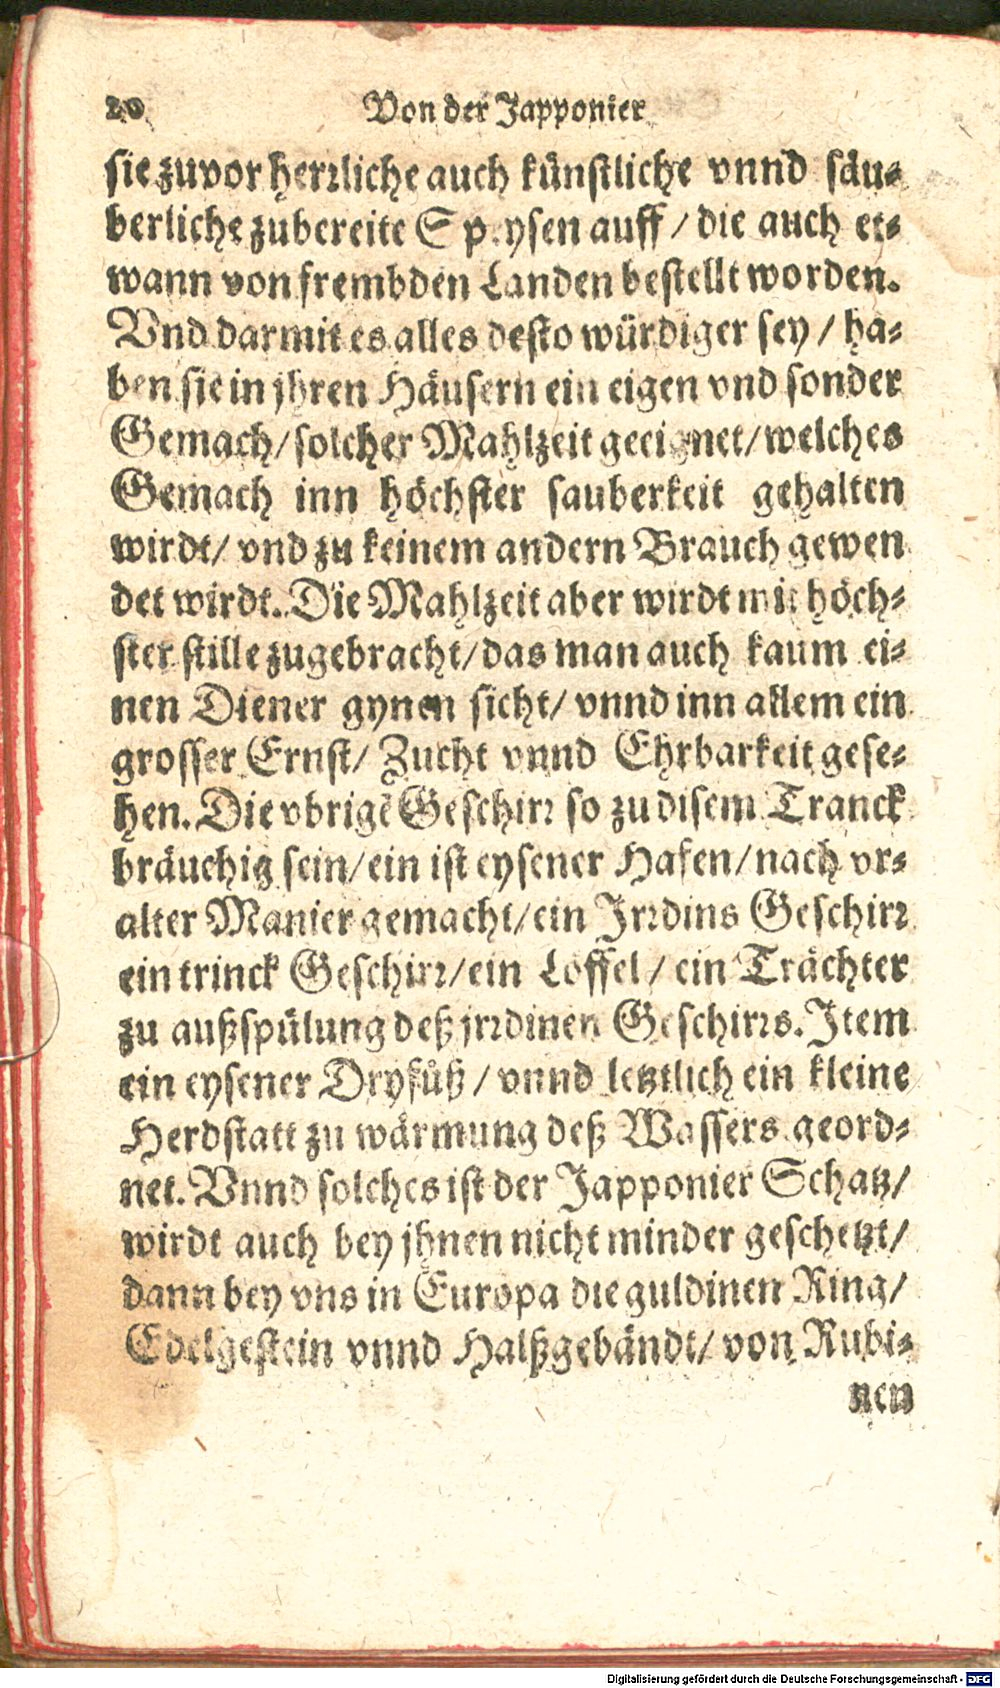 20 Von der Japponier
sie zuvor herrliche auch künstliche vnnd säu-
berliche zubereite Speysen auff / die auch et-
wann von frembden Landen bestellt worden.
Vnd darmit es alles desto würdiger sey / ha-
ben sie in jhren Häusern ein eigen vnd sonder
Gemach/ solcher Mahlzeit geeignet/ welches
Gemach inn höchster sauberkeit gehalten
wirdt/ vnd zu keinem andern Brauch gewen
det wirdt. Die Mahlzeit aber wirdt mit höch-
ster stille zugebracht/ das man auch kaum ei-
nen Diener gynen sicht/ vnnd inn allem ein
grosser Ernst/ Zucht vnnd Ehrbarkeit gese-
hen. Die vbrigẽ Geschirr so zu disem Tranck
bräuchig sein/ ein ist eysener Hafen/ nach vr-
alter Manier gemacht/ ein Jrrdins Geschirr
ein trinck Geschirr/ ein Löffel / ein Trächter
zu außspülung deß jrrdinen Geschirrs. Jtem
ein eysener Dryfůß / vnnd letztlich ein kleine
Herdstatt zu wärmung deß Wassers geord-
net. Vnnd solches ist der Japponier Schatz/
wirdt auch bey jhnen nicht minder geschetzt/
dann bey vns in Europa die guldinen Ring/
Edelgestein vnnd Halßgebändt/ von Rubi-
nen
Digitalisierung gefördert durch die Deutsche Forschungsgemeinschaft - DFG